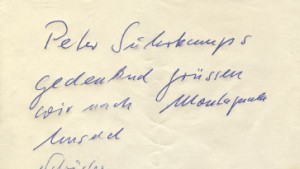 Peter Suhrkamps
gedenkend grüssen
wir nach Montagnola
Unseld